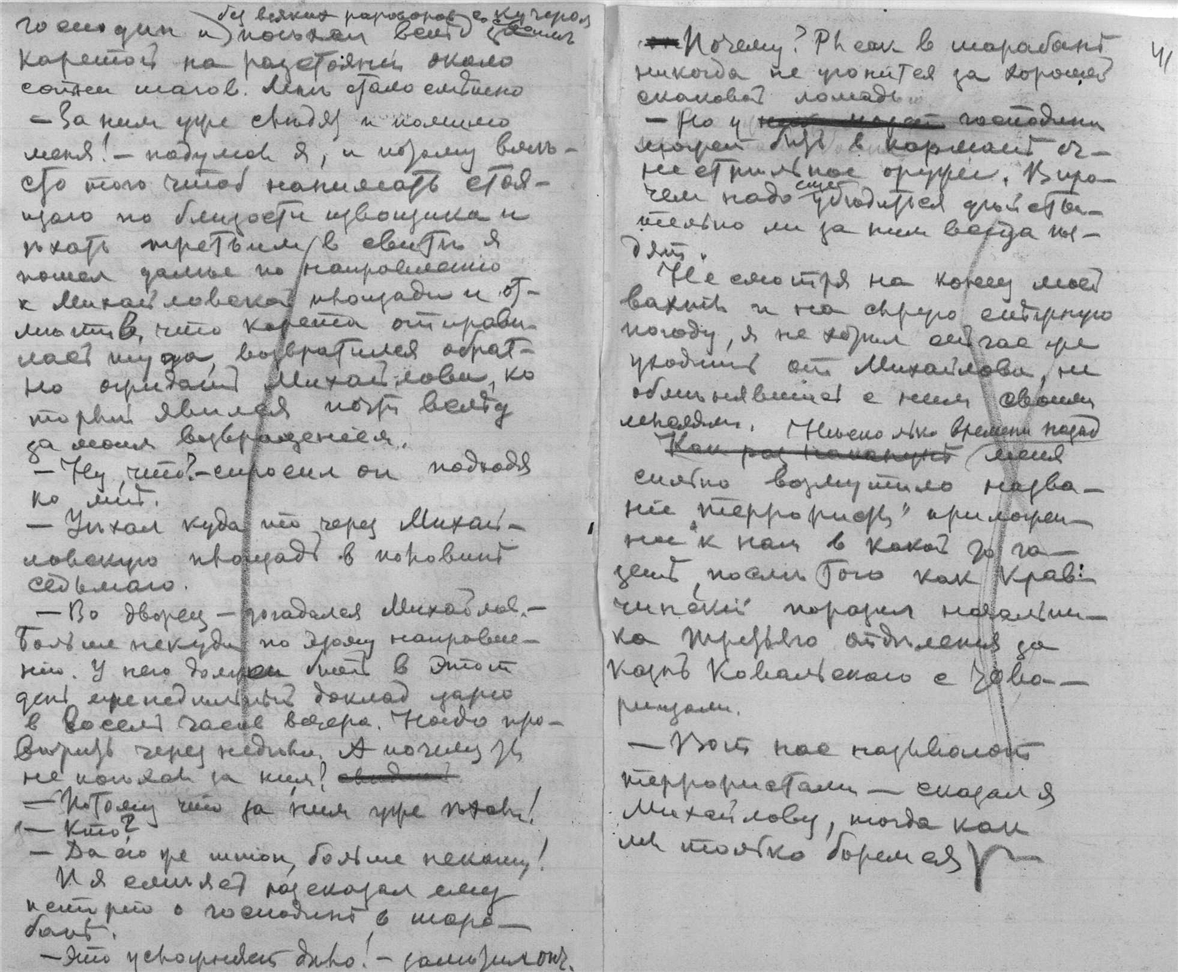 господин и без всяких разговоров с кучером
поехал вслед за
каретой на разстоянiи около
сотни шагов. Мне стало смешно
— За ним уже следят и помимо
меня! — подумал я, и потому вмѣ-
сто того чтоб нанимать стоя-
щаго по близости извощика и
ѣхать третьим в свитѣ я
пошел далее по направленiю
к Михайловской площади и от-
мѣтив, что карета отправи-
лась туда, возвратился обрат-
но ожидать Михайлова, ко
торый явился почти вслѣд
за моим возвращенiем.
— Ну, что? — спросил он подходя
ко мнѣ.
— Уѣхал куда то через Михай-
ловскую площадь в половинѣ
седьмаго.
— Во дворец — догадался Михайлов. —
Больше некуда по этому направле-
нiю. У него должен быть в этот
день еженедѣльный доклад царю
в восемь часов вечера. Надо про-
вѣрить через недѣлю. А почему ты
не поѣхал за ним?
— Потому что за ним уже ѣхали!
— Кто?
— Да его же шпiон, больше некому!
И я смѣясь разсказал ему
о господинѣ в шара-
банѣ.
— Это усложняет дѣло! — замѣтил он.
41
— Почему? Рысак в шарабанѣ
никогда не угонится за хорошей
скаковой лошадью.
— Но у господина
может быть в карманѣ ог-
нестрѣльное оружiе. Впро-
чем надо еще убѣдиться дѣйстви-
тельно ли за ним всегда ѣз-
дят.
Несмотря на конец моей
вахты и на сѣрую вѣтреную
погоду, я не хотѣл сейчас же
уходить от Михайлова, не
обмѣнявшись с ним своими
мыслями. Нѣсколько времени назад
Как раз наканунѣ меня
сильно возмутило назва-
нiе „террористы" приложен-
ное к нам в какой то га-
зетѣ, послѣ того как Крав-
чинскiй поразил начальни-
ка третьяго отдѣленiя за
казнь Ковальскаго с това-
рищами.
— Вот нас называют
террористами — сказал я
Михайлову, тогда как
мы только боремся